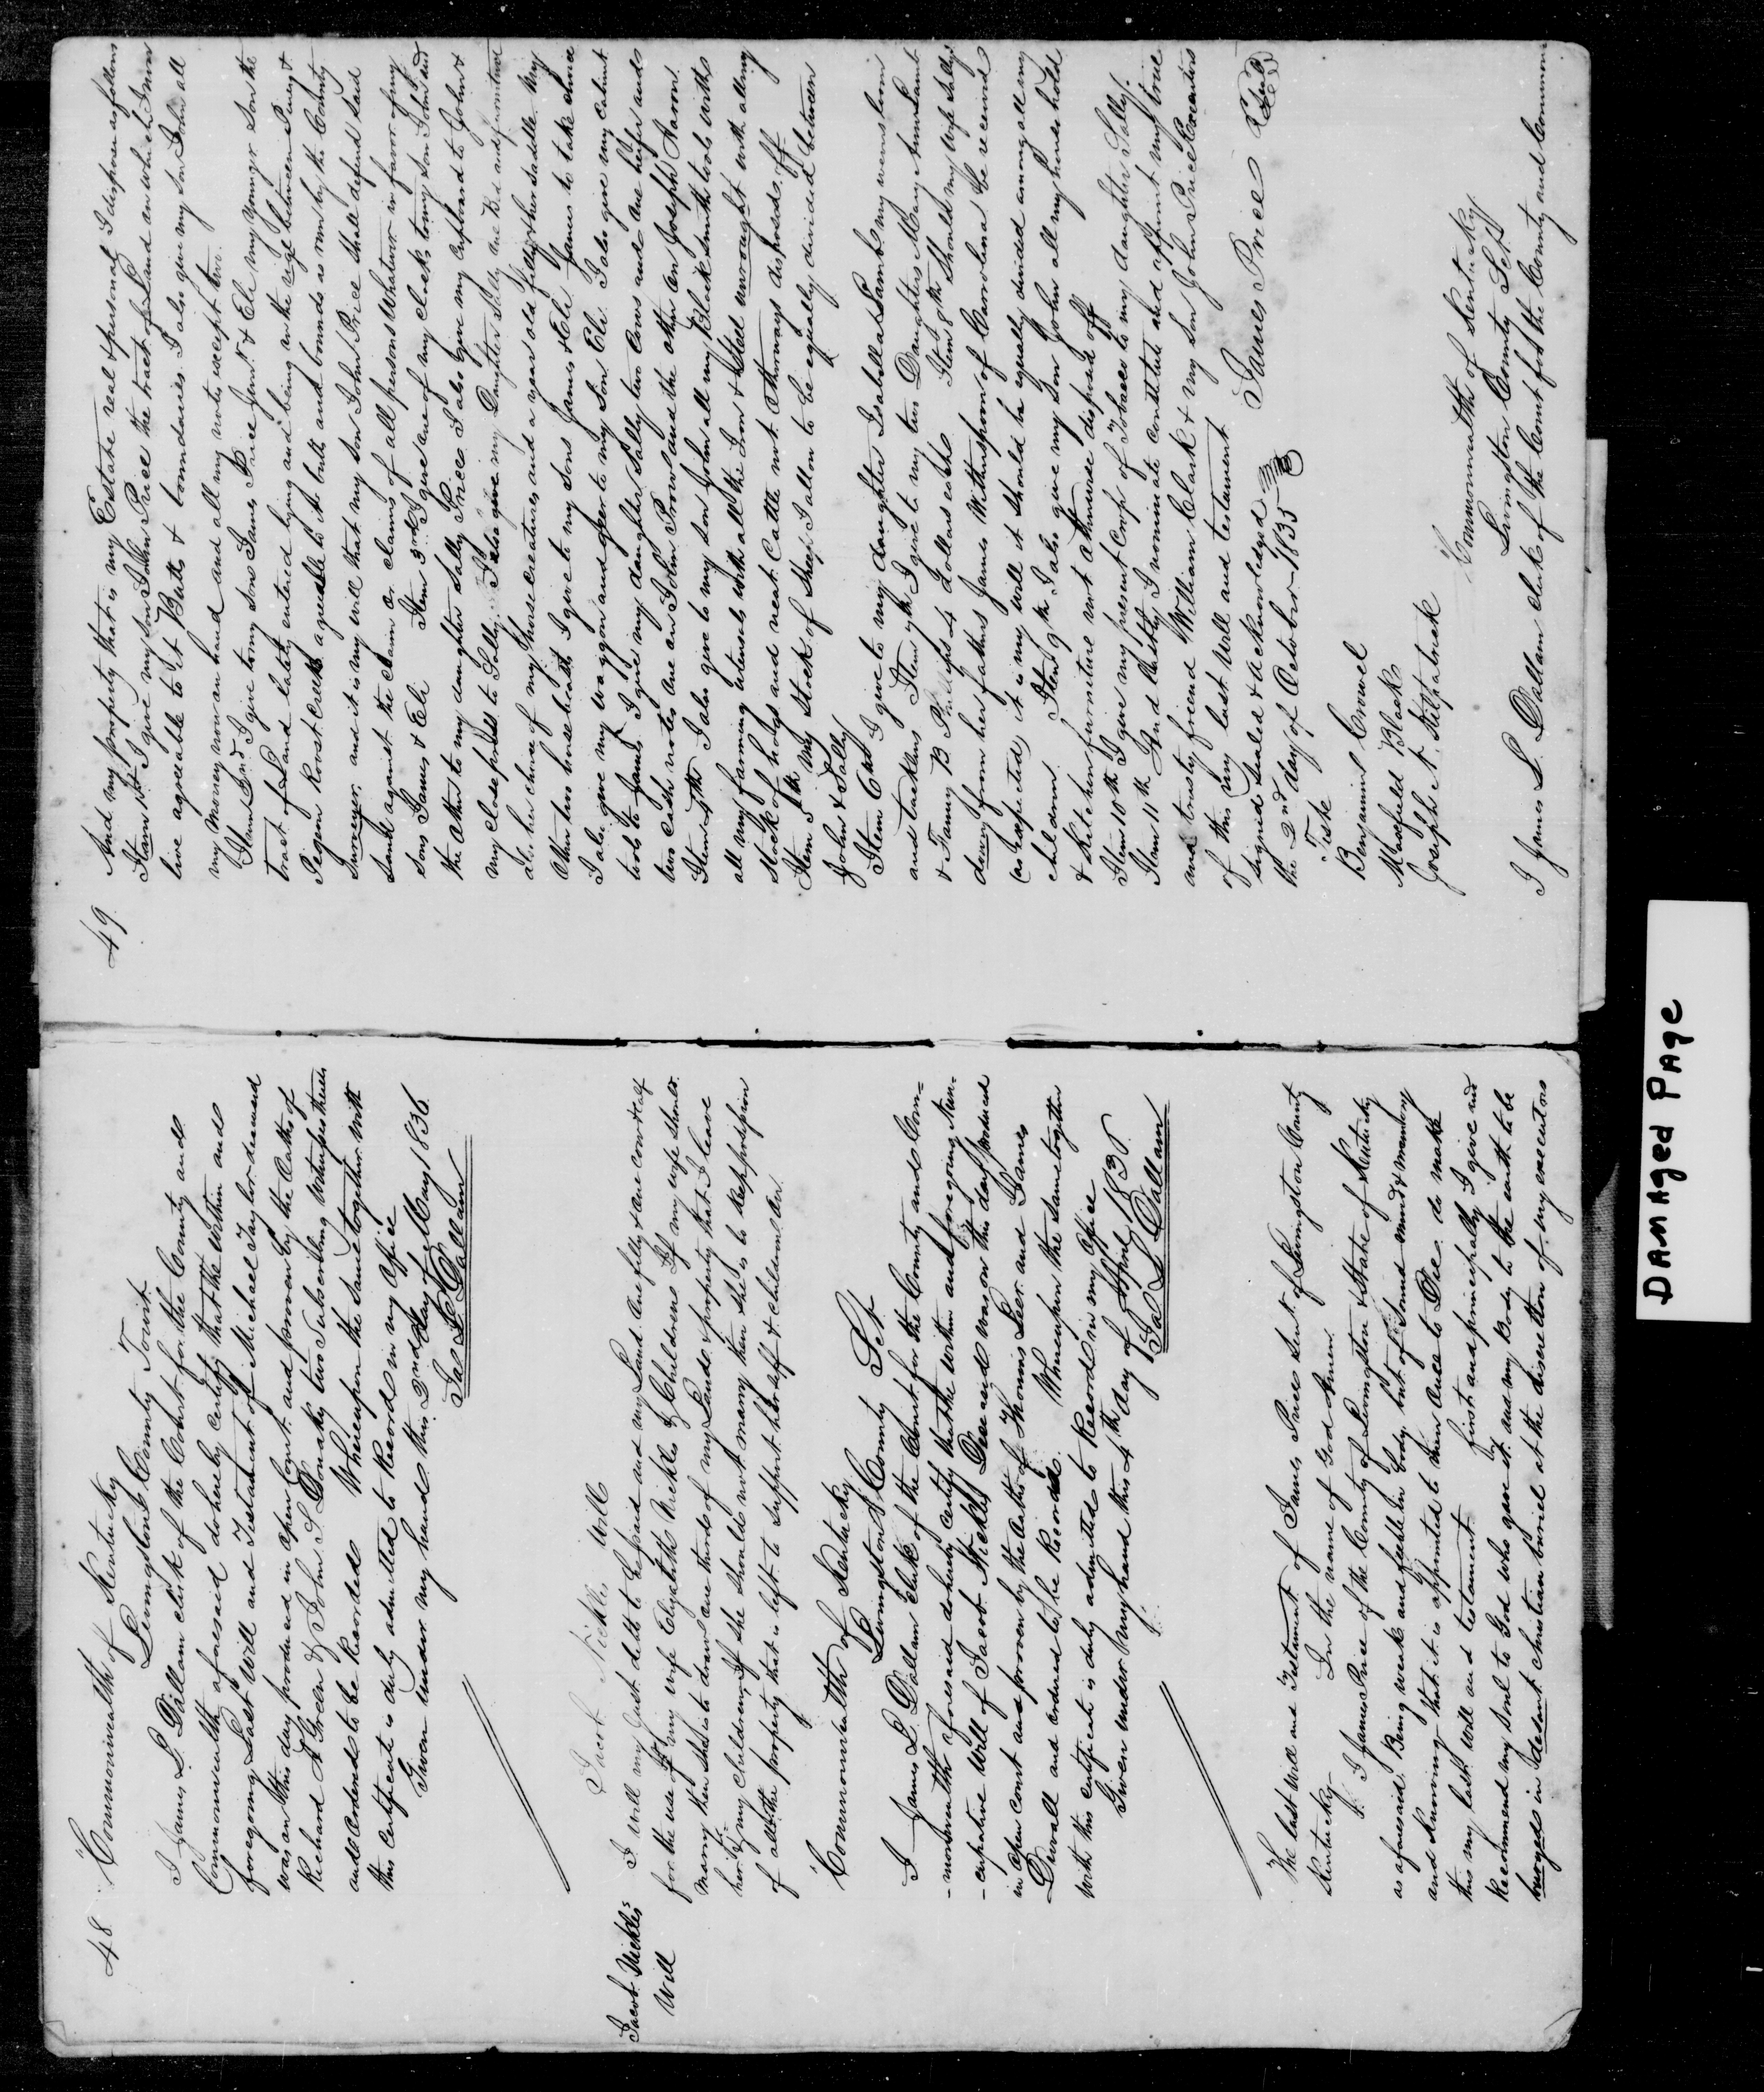 48
Commonwealth of Kentucky
Livingston County Towit
I James L Dallam clerk of the Court for the County and
Commonwealth aforesaid do hereby certify that the within and
foregoing Last Will and Testament of Michael Taylor deceased
was on this day produced in open Court and proven by the Oaths of
Richard A Green & John S. Donaky two Subscribing Witnesses thereto
and Ordered to be Recorded Whereupon the same together with
this certificate is duly admitted to Record in my office
Given under my hand this 2nd day of May 1836.
Jas L. Dallam
Jacob Nickles Will
Jacob Nickles
Will
I will my Just debts to be paid and my Land one filly & one cow & calf
for the use of my wife Elizabeth Nickles & Childrens If my wife should
marry then she is to draw one third of my Lands & property that I leave
her & my children, If she should not marry then she is to keep possession
of all the property that is left to support her self & childrens on
Commonwealth of Kentucky
Livingston County Sct
I James L Dallam Clerk of the Court for the County and Com=
-monwealth aforesaid do hereby certify that the within and foregoing Nun-
-cupative Will of Jacob Nickles Deceased was on this day produced
in open Court and proven by the Oaths of Thomis Leer and James
Duvall and ordered to be Recorded Whereupon the same together
with this certificate is duly admitted to Record in my office
Given under my hand this 4th day of April 1836.
Jas L Dallam
The last Will and Testament of James Price Senr. of Livingston County
Kentucky In the name of God Amen
I James Price of the County of Livingston & State of Kentucky
as aforesaid, Being weak and feeble in body but of sound mind & memory
and Knowing that it is appointed to men once to Die do make
this my last will and testament first and principally I give and
Recommend my Soul to God who gave it and my Body to the earth to be
buryed in decent christian buriel at the discretion of my executors
49
And my property that is my Estate real & personal I dispose as follows
Item 1st I give my son John Price the tract of Land on which I now
live agreeable to it Butts & bounderies I also give my son John all
my money now on hand and all my notes except two.
Item 2nd I give to my sons James Price Junr. & Ele my youngr son the
tract of Land lately entered lying and being in the rige between Piney &
Pigen Roost creeks agreeable to it buts and bounds as run by the County
Surveyer and it is my will that my son John Price shall defend said
Land against the claim or claims of all persons Whatever in favor of my
sons James & Ele Item 3rd I give one of my clocks to my son John and
the other to my daughter Sally Price I also give my cupboard to John &
my close press to Sally. I also give my Daughter Sally one Bed and furniture
also her choice of my Horse creatures and a year old filly & her saddle My
other two horse beasts I give to my Sons James & Ele James to take choice
I also give my waggon and geer to my son Ele I also give my cabinet
tools to James I give my daughter Sally two cows and one heifer and
two cash notes one on John Prow and the other on Joseph Aaron
Item 4th I also give to my son John all my Blacksmith tools with
all my farming utensils with all the Iron & Steel unwrought with all my
Stock of hogs and neat Cattle not otherways disposed off
Item 5th My Stock of Sheep I allow to be equally divided between
John & Sally
Item 6th I give to my daughter Isabella Lamb my wens loom
and tacklins Item 7th I give to my two Daughters Mary Ann Lamb
& Fanny B Phillips 4 Dollars each Item 8th Should my wife Sally
dowry from her fathers James Witherspoon of Carrolina be received
(as expected) it is my will it should be equally divided among all my
children Item 9th I also give my Son John all my house hold
& kitchen furniture not otherwise disposed off
Item 10th I give my present Crop of Tobacco to my daughter Sally.
Item 11th And lastly I nominate constitute and appoint my true
and trusty friend William Clark & my Son John Price Executors
of this my last Will and testament
signed Sealed & acknowledged
the 2nd day of October 1835
James Price Seal
Teste
Benjamin Crowel
Mansfield Black
Joseph A. Kilpatrick
Commonwealth of Kentucky
Livingston County Sct
I James L. Dallam clerk of the Court for the County and Common
DAMAged PAge